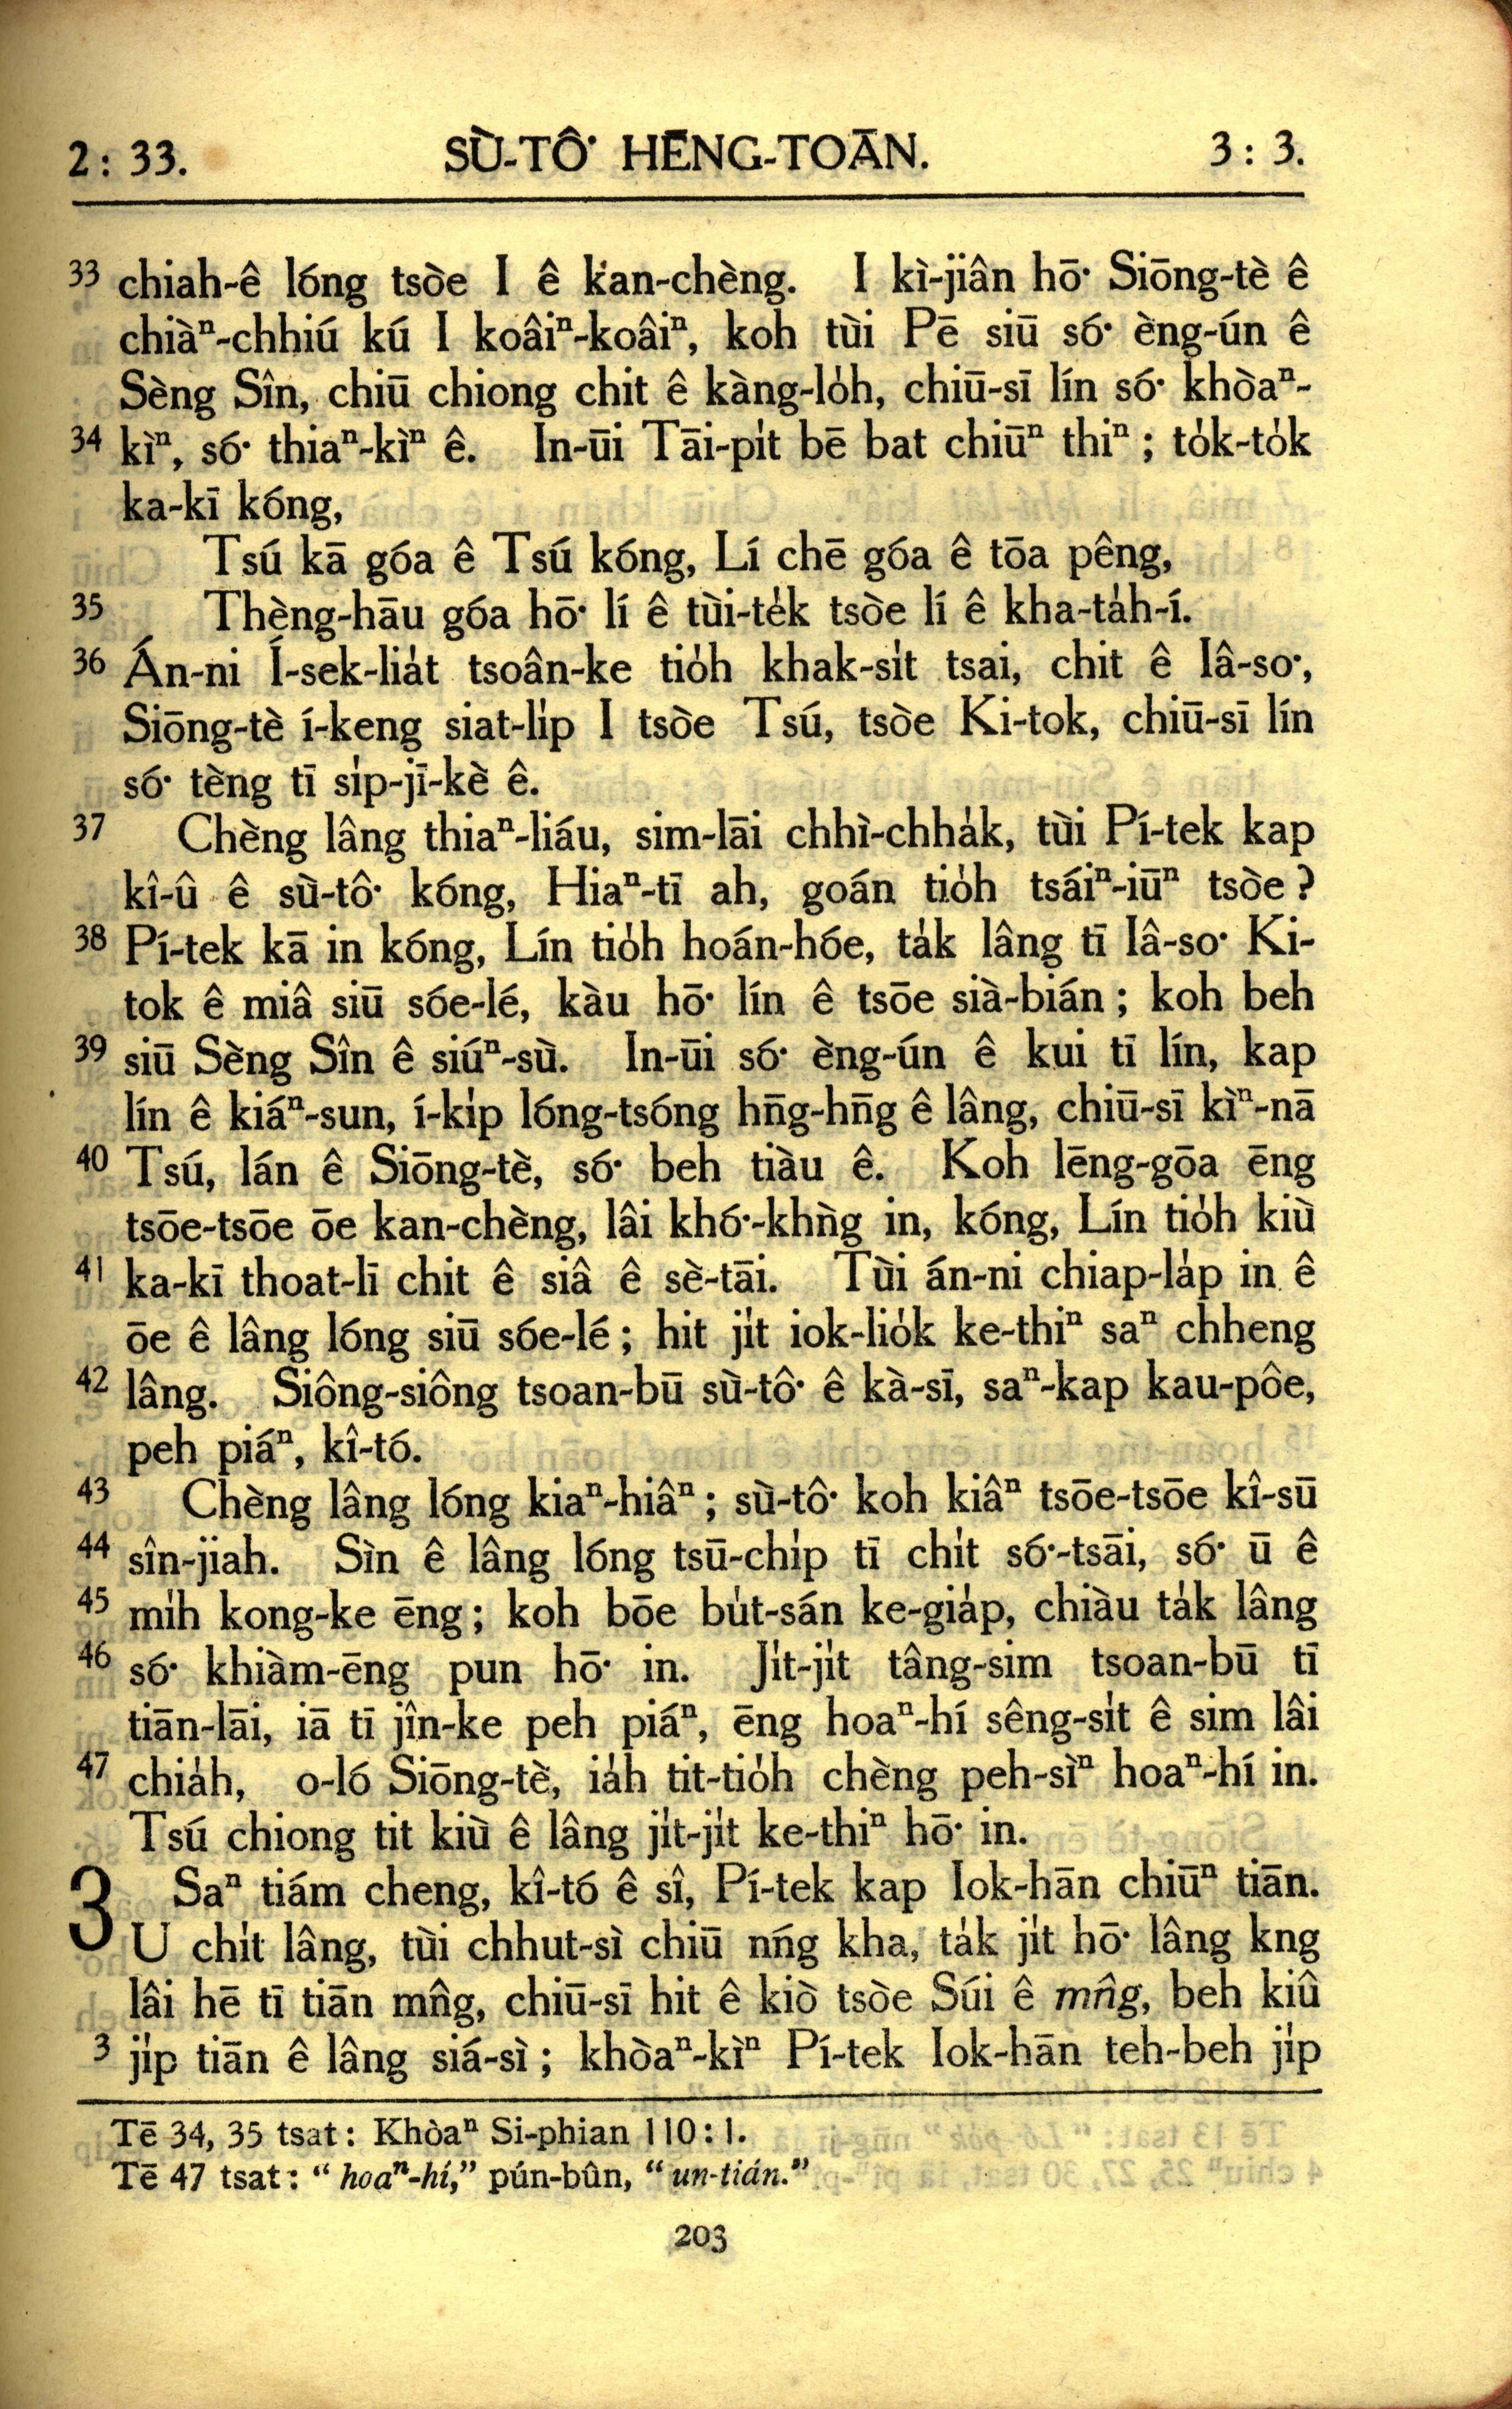 2: 33. SÙ-TÔ͘ HĒNG-TOĀN. 3: 3.
33 chiah-ê lóng tsòe I ê kan-chèng. I kì-jiân hō͘ Siōng-tè ê
chiàⁿ-chhiú kú I koâiⁿ-koâiⁿ, koh tùi Pē siū só͘ èng-ún ê
Sèng Sîn, chiū chiong chit ê kàng-lo̍h, chiū-sī lín só͘ khòaⁿ-
34 kìⁿ, só͘ thiaⁿ-kìⁿ ê. In-ūi Tāi-pi̍t bē bat chiūⁿ thiⁿ; to̍k-to̍k
ka-kī kóng,
Tsú kā góa ê Tsú kóng, Lí chē góa ê tōa pêng,
35 Thèng-hāu góa hō͘ lí ê tùi-te̍k tsòe lí ê kha-ta̍h-í.
36 Án-ni Í-sek-lia̍t tsoân-ke tio̍h khak-si̍t tsai, chit ê Iâ-so͘,
Siōng-tè í-keng siat-li̍p I tsòe Tsú, tsòe Ki-tok, chiū-sī lín
só͘ tèng tī si̍p-jī-kè ê.
37 Chèng lâng thiaⁿ-liáu, sim-lāi chhì-chha̍k, tùi Pí-tek kap
kî-û ê sù-tô͘ kóng, Hiaⁿ-tī ah, goán tio̍h tsáiⁿ-iūⁿ tsòe?
38 Pí-tek kā in kóng, Lín tio̍h hoán-hóe, ta̍k lâng tī Iâ-so͘ Ki-
tok ê miâ siū sóe-lé, kàu hō͘ lín ê tsōe sià-bián; koh beh
39 siū Sèng Sîn ê siúⁿ-sù. In-ūi só͘ èng-ún ê kui tī lín, kap
lín ê kiáⁿ-sun, í-ki̍p lóng-tsóng hn̄g-hn̄g ê lâng, chiū-sī kìⁿ-nā
40 Tsú, lán ê Siōng-tè, só͘ beh tiàu ê. Koh lēng-gōa ēng
tsōe-tsōe ōe kan-chèng, lâi khó͘-khǹg in, kóng, Lín tio̍h kiù
41 ka-kī thoat-lī chit ê siâ ê sè-tāi. Tùi án-ni chiap-la̍p in ê
ōe ê lâng lóng siū sóe-lé; hit ji̍t iok-lio̍k ke-thiⁿ saⁿ chheng
42 lâng. Siông-siông tsoan-bū sù-tô͘ ê kà-sī, saⁿ-kap kau-pôe,
peh piáⁿ, kî-tó.
43 Chèng lâng lóng kiaⁿ-hiâⁿ; sù-tô͘ koh kiâⁿ tsōe-tsōe kî-sū
44 sîn-jiah. Sìn ê lâng lóng tsū-chi̍p tī chi̍t só͘-tsāi, só͘ ū ê
45 mi̍h kong-ke ēng; koh bōe bu̍t-sán ke-gia̍p, chiàu ta̍k lâng
46 só͘ khiàm-ēng pun hō͘ in. Ji̍t-ji̍t tâng-sim tsoan-bū tī
tiān-lāi, iā tī jîn-ke peh piáⁿ, ēng hoaⁿ-hí sêng-si̍t ê sim lâi
47 chia̍h, o-ló Siōng-tè, ia̍h tit-tio̍h chèng peh-sìⁿ hoaⁿ-hí in.
Tsú chiong tit kiù ê lâng ji̍t-ji̍t ke-thiⁿ hō͘ in.
3 Saⁿ tiám cheng, kî-tó ê sî, Pí-tek kap Iok-hān chiūⁿ tiān.
U chi̍t lâng, tùi chhut-sì chiū nńg kha, ta̍k ji̍t hō͘ lâng kng
lâi hē tī tiān mn̂g, chiū-sī hit ê kiò tsòe Súi ê mn̂g, beh kiû
3 ji̍p tiān ê lâng siá-sì; khòaⁿ-kìⁿ Pí-tek Iok-hān teh-beh ji̍p
Tē 34, 35 tsat: Khòaⁿ Si-phian 110:1.
Tē 47 tsat: “hoaⁿ-hí,” pún-bûn, “un-tián.”
203